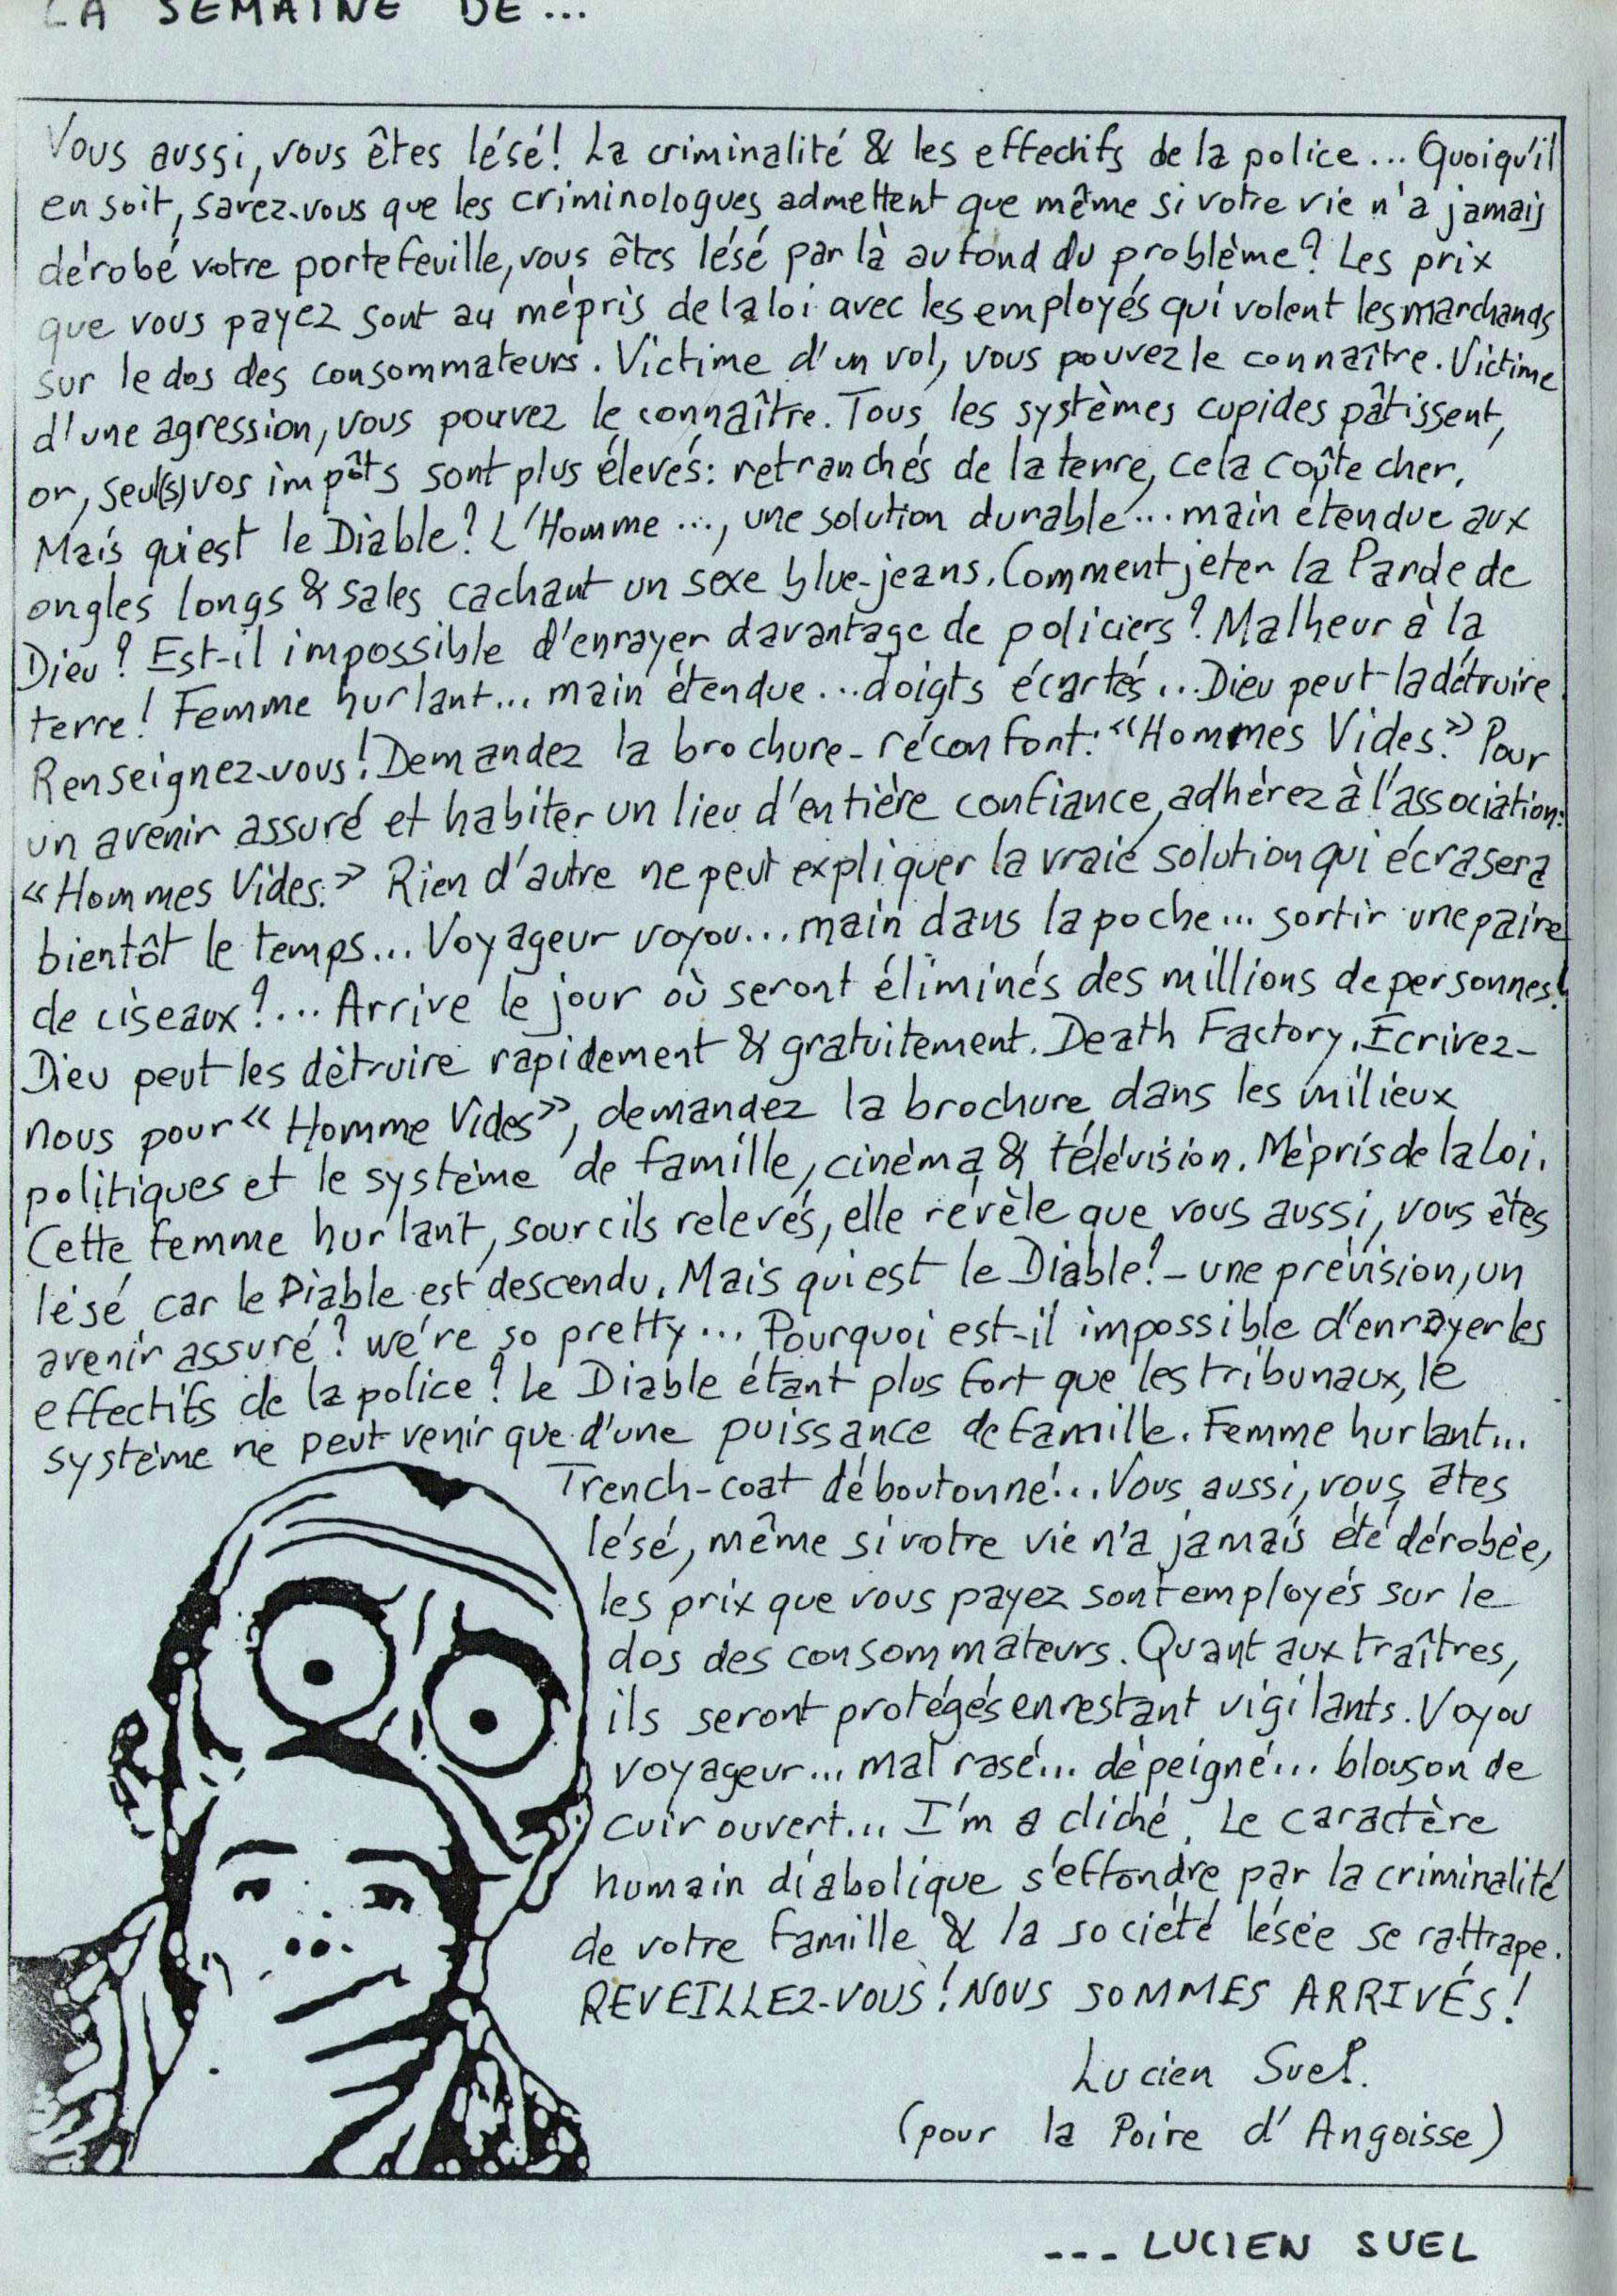 LA SEMAINE DE...
Vous aussi, vous êtes lésé! La criminalité & les effectifs de la police... Quoiqu'il
en soit, savez-vous que les criminologues admettent que même si votre vie n'a jamais
dérobé votre portefeuille, vous êtes lésé par là au fond du problème? Les prix
que vous payez sont au mépris de la loi avec les employés qui volent les marchands
sur le dos des consommateurs. Victime d'un vol, vous pouvez le connaître. Victime
d'une agression, vous pouvez le connaître. Tous les systèmes cupides pâtissent,
or, seul(s) vos impôts sont plus élevés: retranchés de la terre, cela coûte cher.
Mais qui est le Diable? L'Homme..., une solution durable... main étendue aux
ongles longs & sales cachant un sexe blue-jeans. Comment jeter la Parde de
Dieu? Est-il impossible d'enrayer davantage de policiers? Malheur à la
terre! Femme hurlant... main étendue... doigts écartés... Dieu peut la détruire.
Renseignez-vous! Demandez la brochure-réconfort: "Hommes Vides." Pour
un avenir assuré et habiter un lieu d'entière confiance, adhérez à l'association:
«Hommes Vides.» Rien d'autre ne peut expliquer la vraie solution qui écrasera
bientôt le temps... Voyageur voyou... main dans la poche... sortir une paire
de ciseaux?... Arrive le jour où seront éliminés des millions de personnes!
Dieu peut les détruire rapidement & gratuitement. Death Factory. Ecrivez-
nous pour «Homme Vides», demandez la brochure dans les milieux
politiques et le système de famille, cinéma & télévision. Mépris de la loi.
Cette femme hurlant, sourcils relevés, elle révèle que vous aussi, vous êtes
lésé car le Diable est descendu. Mais qui est le Diable? - une prévision, un
avenir assuré? we're so pretty... Pourquoi est-il impossible d'enrayer les
effectifs de la police? Le Diable étant plus fort que les tribunaux, le
système ne peut venir que d'une puissance de famille. Femme hurlant...
Trench-coat déboutonné... Vous aussi, vous êtes
lésé, même si votre vie n'a jamais été dérobée,
les prix que vous payez sont employés sur le
dos des consommateurs. Quant aux traîtres,
ils seront protégés en restant vigilants. Voyou
voyageur... mal rasé... dépeigné... blouson de
cuir ouvert... I'm a cliché. Le caractère
humain diabolique s'effondre par la criminalité
de votre famille & la société lésée se rattrape.
REVEILLEZ-VOUS! NOUS SOMMES ARRIVÉS!
Lucien Suel.
(pour la Poire d'Angoisse)
--- LUCIEN SUEL